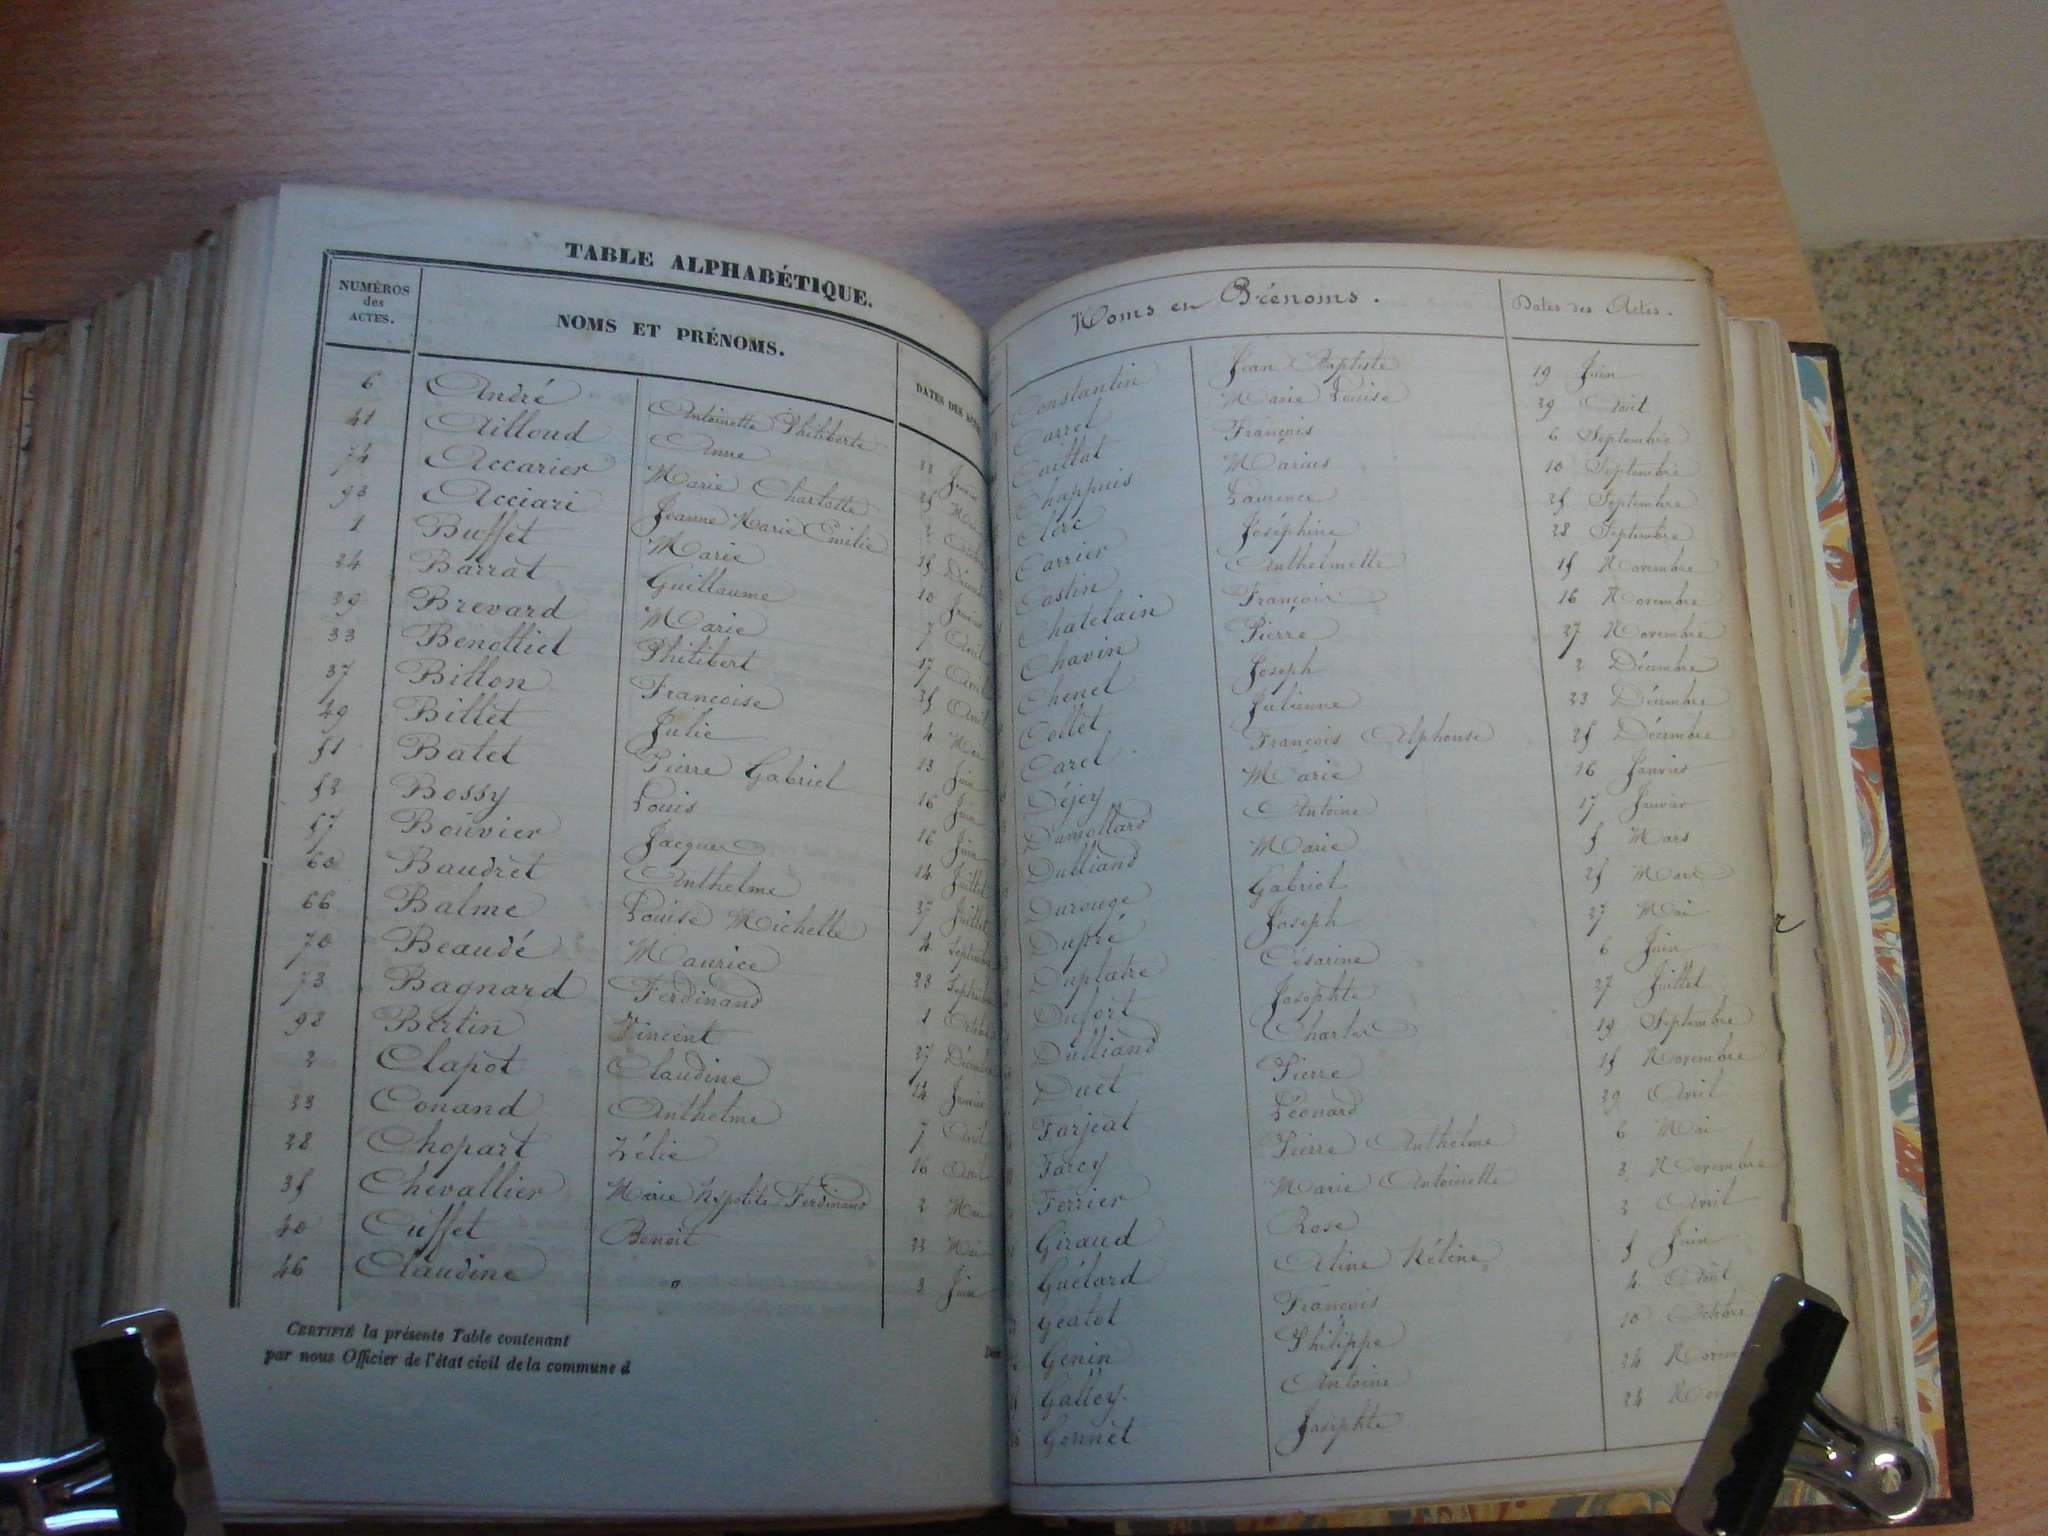 TABLE ALPHABÉTIQUE.
NUMÉROS des ACTES. NOMS ET PRÉNOMS. DATES DES
6 André Antoinette Philiberte
41 Ailloud Anne
74 Accarier Marie Charlotte
93 Acciari Jeanne Marie Emilie
1 Buffet Marie 10
24 Barrat Guillaume 7 Avril
29 Brevard Marie 17 Avril
33 Benottiet Philibert 25 Avril
37 Billon Francoise 4 Mai
49 Billet Julie 13 Juin
51 Batet Pierre Gabriel 16 Juin
52 Bossy Louis 16 Juin
57 Bouvier Jacques 14 Juillet
60 Baudret Anthelme 27 Juillet
66 Balme Louise Michelle 4 Septembre
70 Beaudé Maurice 23
73 Bagnard Ferdinand 1
92 Bertin Vincent 27
2 Clapot Claudine 14 Janvier
23 Conand Anthelme 7 Avril
28 Chopart Zélie 16 Avril
35 Chevallier Marie Hypolite Ferdinand 2 Mai
40 Cuffet Benoit 23 Mai
46 Claudine " 3 Juin
CERTIFIÉ la présente Table contenant
par nous Officier de l'état civil de la commune d
Noms en Prénoms. Dates des Actes.
Constantin Jean Baptiste 19 Juin
Carrel Marie Louise 29 Août
Caillat François 6 Septembre
Chappuis Marius 10 Septembre
Clerc Laurence 25 Septembre
Carrier Joséphine 28 Septembre
Castin Anthelmette 15 Novembre
Chatelain François 16 Novembre
Chavin Pierre 27 Novembre
Chenel Joseph 2 Décembre
Collet Julienne 23 Décembre
Carel François Alphonse 25 Décembre
Déjey Marie 16 Janvier
Dumollard Antoine 17 Janvier
Dulliand Marie 5 Mars
Darouge Gabriel 25 Mars
Dupré Joseph 27 Mai
Duplatre Césarine 6 Juin
Dufort Josephte 27 Juillet
Dulliand Charles 19 Septembre
Duet Pierre 15 Novembre
Farjeat Léonard 29 Avril
Farcy Pierre Anthelme 6 Mai
Ferrier Marie Antoinette 3 Novembre
Giraud Rose 2 Avril
Guélard Aline Hélène 5 Juin
Geatot François 4 Août
Genin Philippe 10 Octobre
Galley Antoine 24
Gonnet Josephte 24